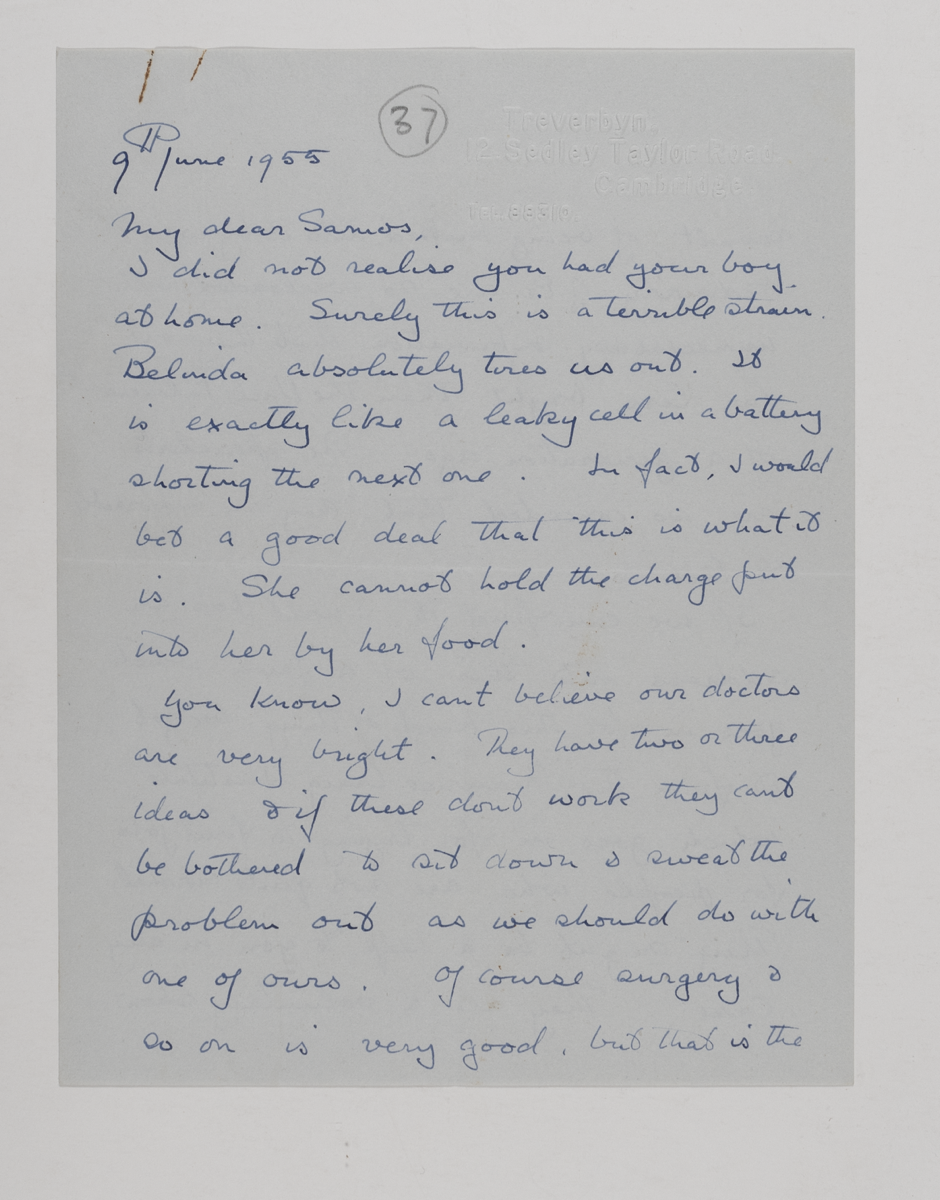 37
Treverbyn,
12, Sedley Taylor Road
Cambridge
9th June 1955
My dear Samos,
I did not realise you had your boy
at home. Surely this is a terrible strain.
Belinda absolutely tires us out. It
is exactly like a leaky cell in a battery
shorting the next one. In fact, I would
bet a good deal that this is what it
is. She cannot hold the charge put
into her by her food.
You know, I cant believe our doctors
are very bright. They have two or three
ideas & if these dont work they cant
be bothered to sit down & sweat the
problem out as we should do with
one of ours. Of course surgery &
so on is very good, but that is the